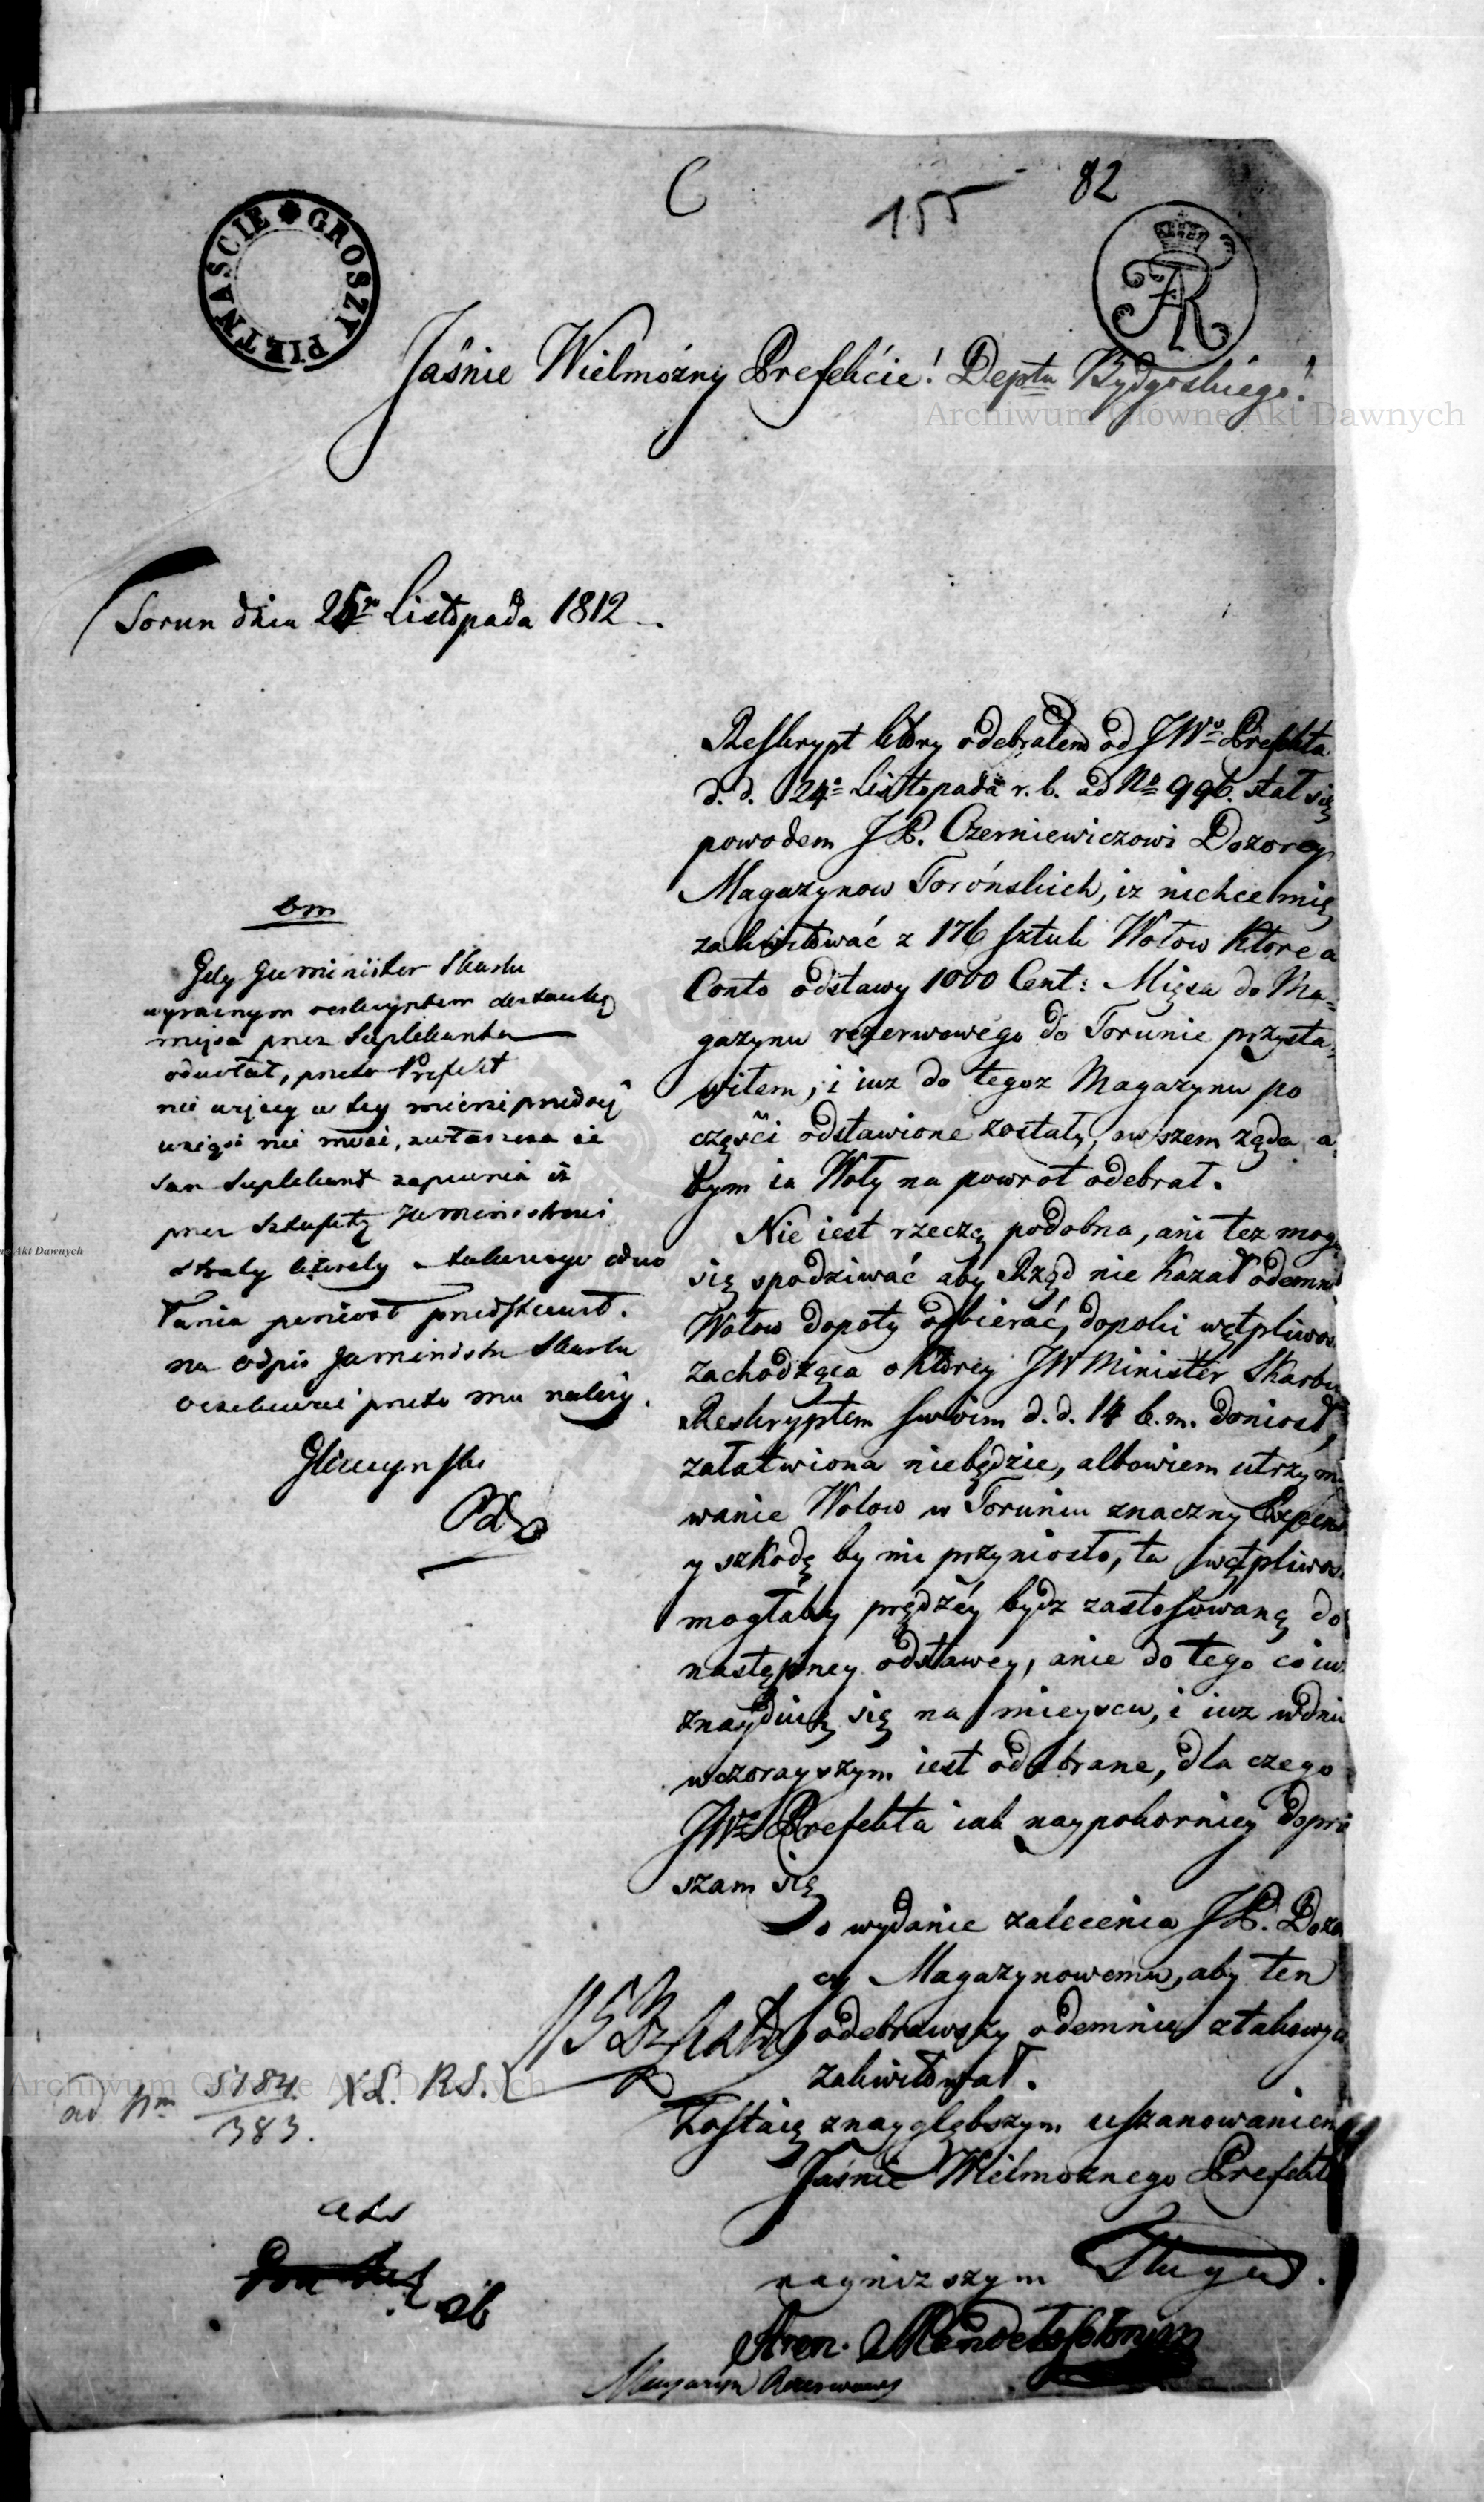 C
155
82
GROSZY PIETNASCIE
AR
Jaśnie Wielmożny Prefekcie! Deptu Bydgoskiego!
Archiwum Główne Akt Dawnych
Torun dnia 25go Listopada 1812
Reskrypt ktory odebrałem od JWo Prefekta
d. d. 24o Listopada r. b. ad No 996. stał się
powodem JP. Czerniewiczowi Dozorcy
Magazynow Toróńskich, iz niechce mię
zakwitować z 176 sztuk Wołow Które a
Conto odstawy 1000 Cent: Mięsa do Ma=
gazynu rezerwowego do Torunie przysta=
wiłem, i iuz do tegoz Magazynu po
części odstawione zostały, owszem ząda a=
bym ia Woły na powrot odebrał.
Nie iest rzeczą podobna, ani tez mogę
się spodziwać aby Rząd nie Kazał odemnie
Wołow dopoty odbierać, dopoki wątpliwos
zachodząca o Ktorey JW Minister Skarbu
Reskryptem swoim d. d. 14 b. m. doniosł,
załatwiona niebędzie, albowiem utrzymy
wanie Wołow w Toruniu znaczny Expens
y szKodę by mi przyniosło, ta wątpliwos
mogłaby prędzéy bydz zastosowaną do
następney odstawey, anie do tego co iuz
znayduią się na mieyscu, i iuz wdniu
wczorayszym iest odebrane, dla czego
JWo Prefekta iak naypokorniey dopra
szam się
o wydanie zalecenia JP. Dozor
cy Magazynowemu, aby ten
odebrawszy odemnie ztakowych
zakwitował.
Zostaię znaygłębszym uszanowaniem
Jaśnie Wielmoznego Prefekta
nayniszszym Sługą.
Aron. Mendelsohn
Magazyn Rezerwowy
bm
Gdy JW minister Skarbu
wyraznym reskryptem dostawkę
mięsa przez Suplikanta
odwołał, przeto Prefekt
nic więcy w tey mierze przedsię
wziąść nie może, zwłaszcza że
sam Suplikant zapewnia iż
przez Sztafetę JW ministrowi
straty takowego odwo
łania ponieść przedstawił.
na odpis JW ministra Skarbu
oczekiwać przeto mu należy.
Gliszczynski
ad Nm 5184/383. XL. RS.
Archiwum Główne Akt Dawnych
ne Akt Dawnych